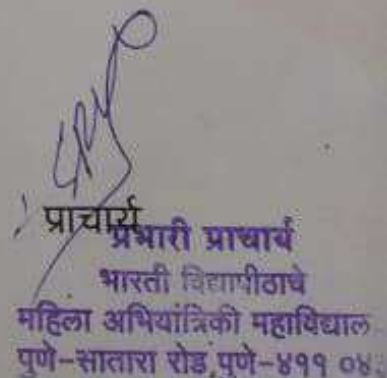 प्राचार्य
प्रभारी प्राचार्य
भारती विद्यापीठाचे
महिला अभियांत्रिकी महाविद्याल
पुणे-सातारा रोड, पुणे-४११ ०४